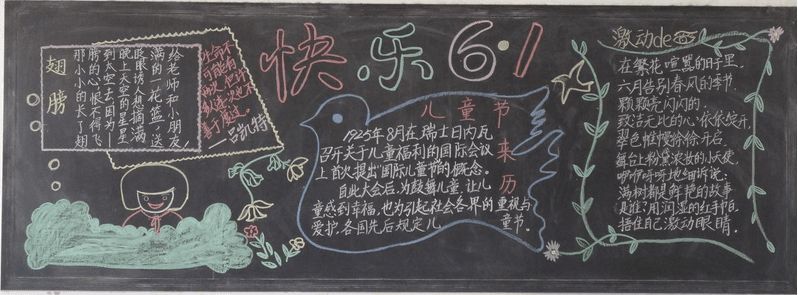 快乐6·1
翅膀
那小小的长了翅
膀的心,恨不得飞
到太空去,因为——
晚上天空的星星
眨眼诱人想摘满
满的一花篮,送
给老师和小朋友,
——吕凯特
儿童节来历
1925年8月在瑞士日内瓦
召开关于儿童福利的国际会议
上首次提出“国际儿童节”的概念。
自此大会后,为鼓舞儿童,让儿
童感到幸福,也为引起社会各界的重视与
爱护,各国先后规定儿童节。
激动de
在繁花喧嚣的日子里,
六月告别春风的季节,
颗颗亮闪闪的,
致洁无比的心,依依绽开,
翠色帷幔徐徐开启,
舞台上粉黛浓妆的小天使,
咿咿呀呀地细诉说:
满树都是鲜艳的故事
是谁?用润湿的红手帕,
捂住自己激动眼睛。